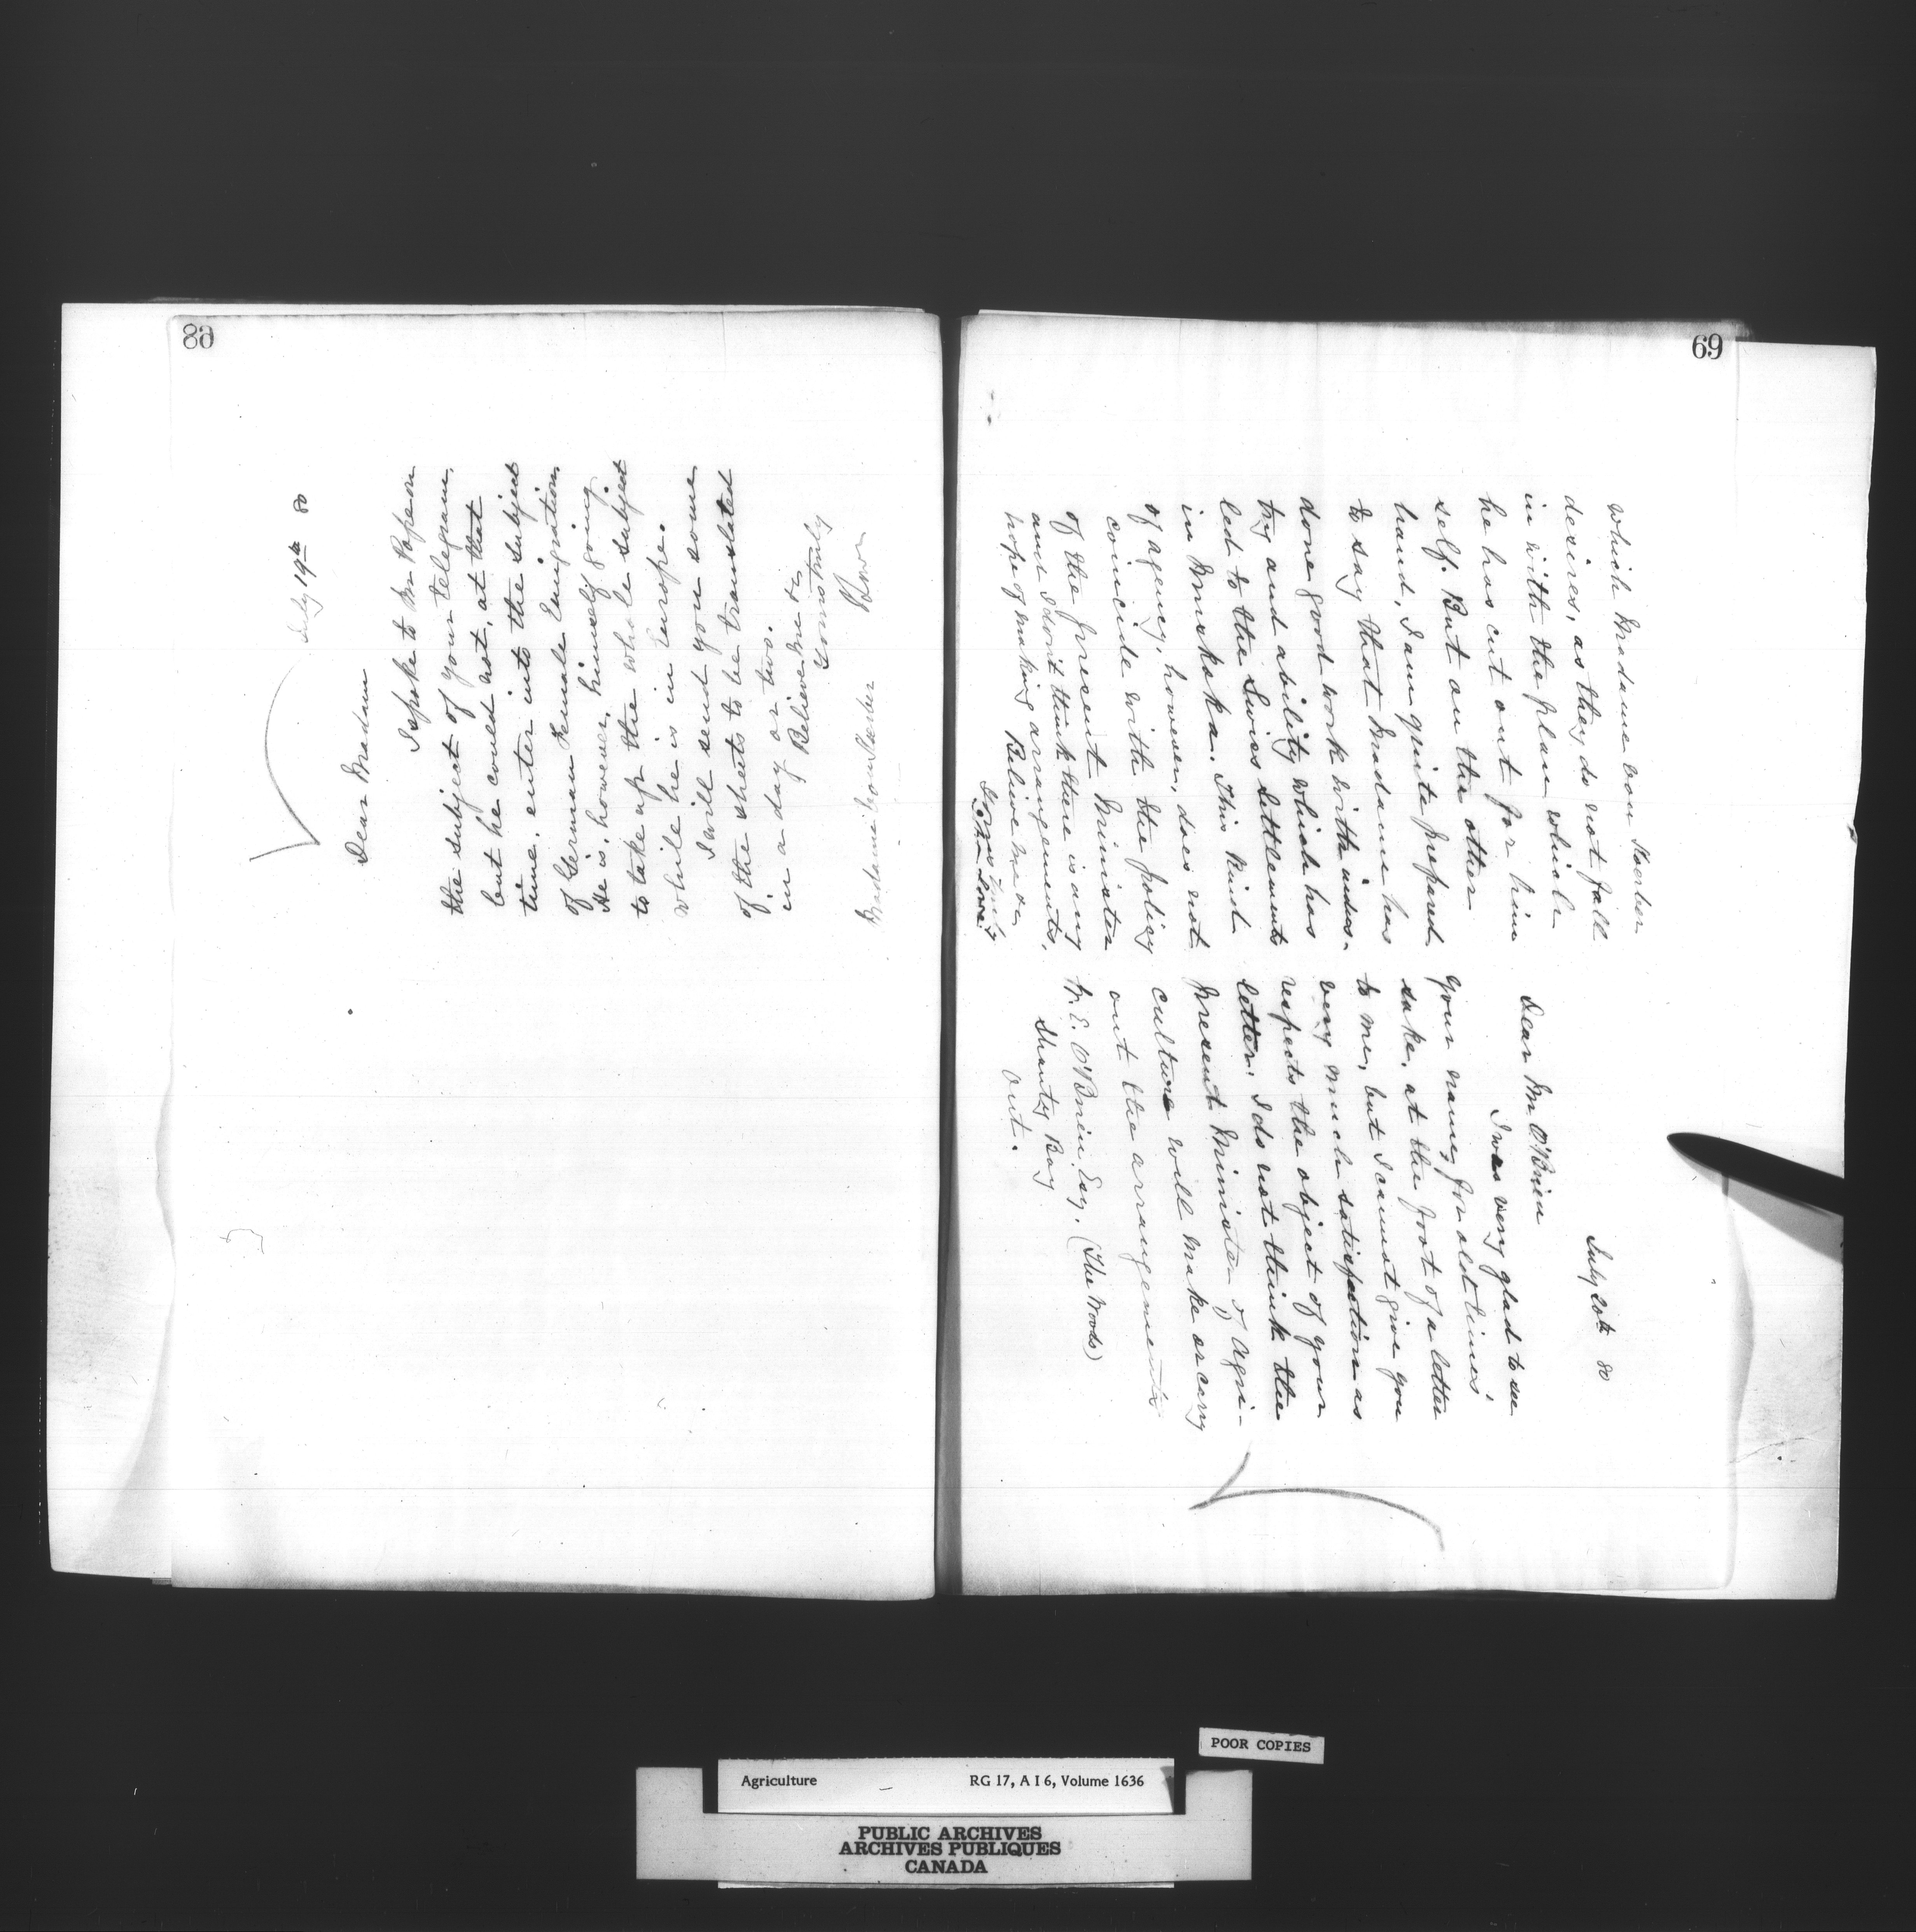 68
July 19th 80
Dear Madam
I spoke to Mr Pope on
the subject of your telegram,
but he could not, at that
time, enter into the subject
of German Female Emigration.
He is, however, himself going
to take up the whole subject
while he is in Europe.
I will send you some
of the sheets to be translated
in a day or two.
Believe me dr
Yours truly
Lowe
Madame von Koerber
69
July 20th 80
Dear Mr O'Brien
I was very glad to see
your name, for old times'
sake, at the foot of a letter
to me, but I cannot give you
very much satisfaction as
respects the object of your
letter. I do not think the
present Minister of Agri-
culture will make or carry
out the arrangements
W. E. O'Brien Esq. (The Woods)
Shanty Bay
Ont.
which Madame von Koerber
desires, as they do not fall
in with the plan which
he has cut out for him
self. But on the other
hand, I am quite prepared
to say that Madame has
done good work with indus-
try and ability which has
led to the Swiss settlements
in Muskoka. This kind
of agency, however, does not
coincide with the policy
of the present Minister
and I don't think there is any
hope of making arrangements.
Believe me dr
Yours truly
John Lowe
POOR COPIES
Agriculture RG 17, A I 6, Volume 1636
PUBLIC ARCHIVES
ARCHIVES PUBLIQUES
CANADA